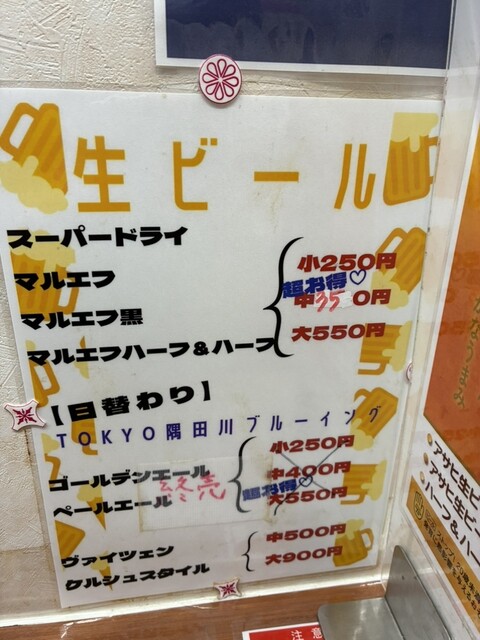 生ビール
スーパードライ
マルエフ
マルエフ黒
マルエフハーフ&ハーフ
小250円
超お得♡
中350円
大550円
【日替わり】
TOKYO隅田川ブルーイング
ゴールデンエール
ペールエール
終売
小250円
中400円
超お得♡
大550円
ヴァイツェン
ケルシュスタイル
中500円
大900円
・アサヒ生ビ
・アサヒ生ビ
・ハーフ&ハー
注意